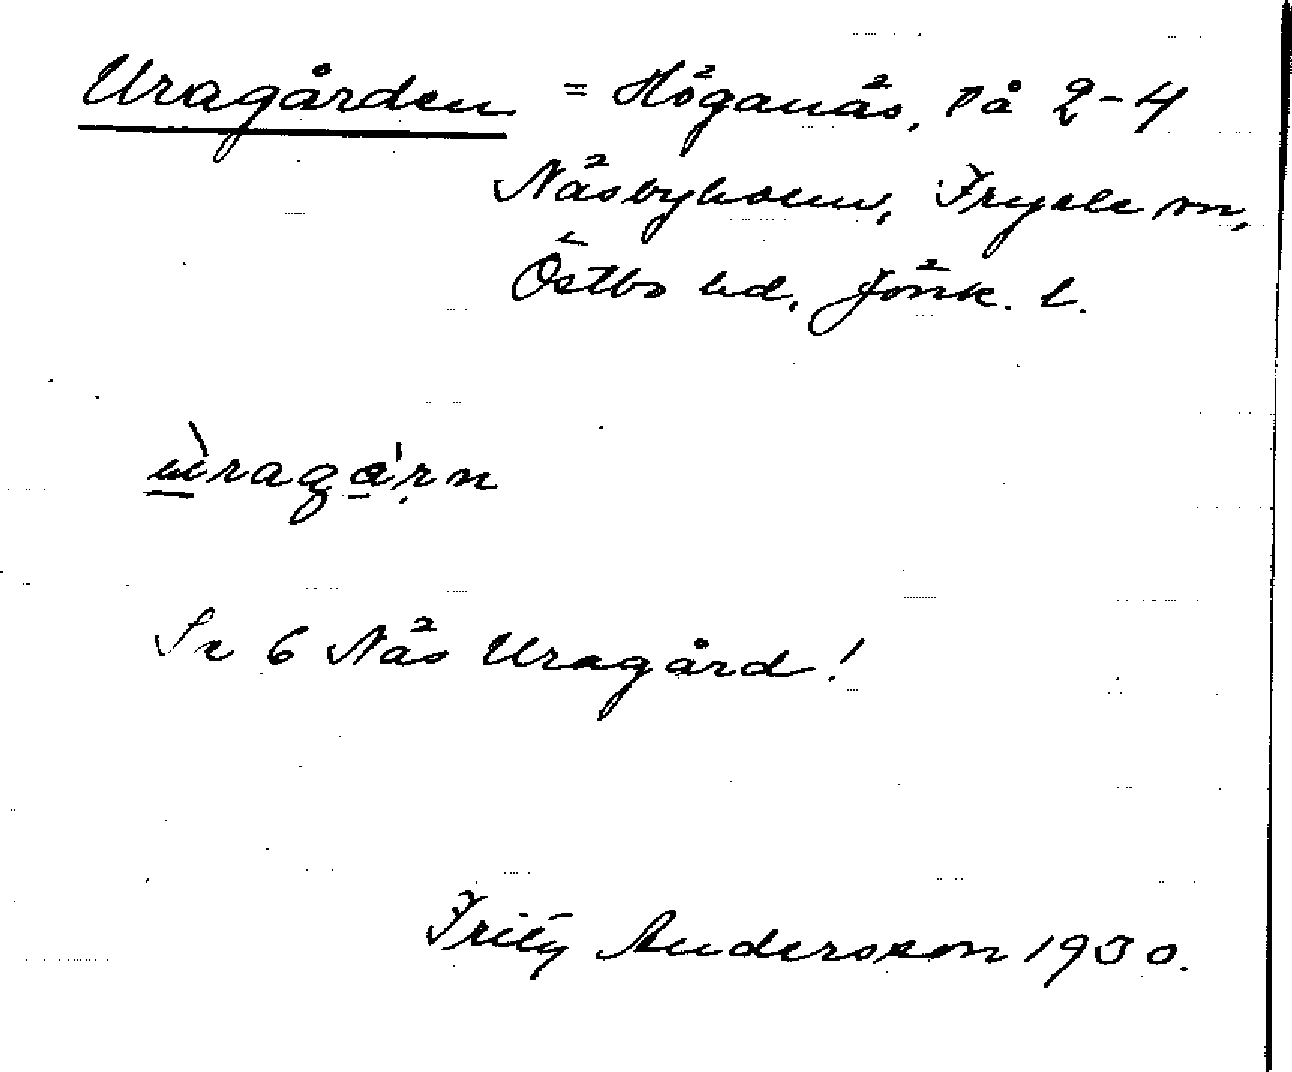 Uragården = Höganäs, på 2-4
Näsbyholm, Fryele sn,
Östbo hd, Jönk. l.
ùragá'rn
Se 6 Näs Uragård!
Fritz Andersson 1930.